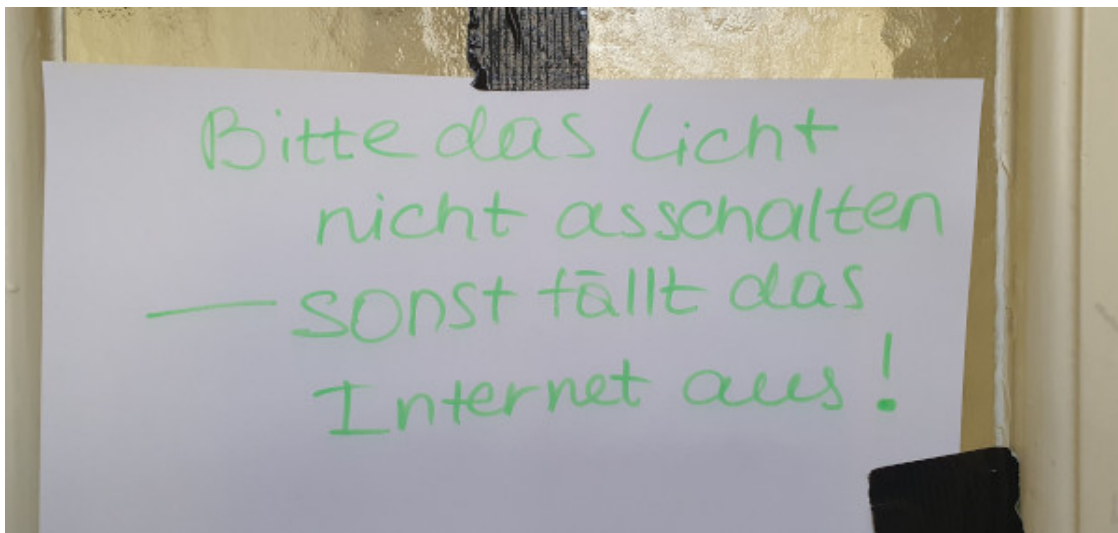 Bitte das Licht
nicht asschalten
— sonst fällt das
Internet aus!